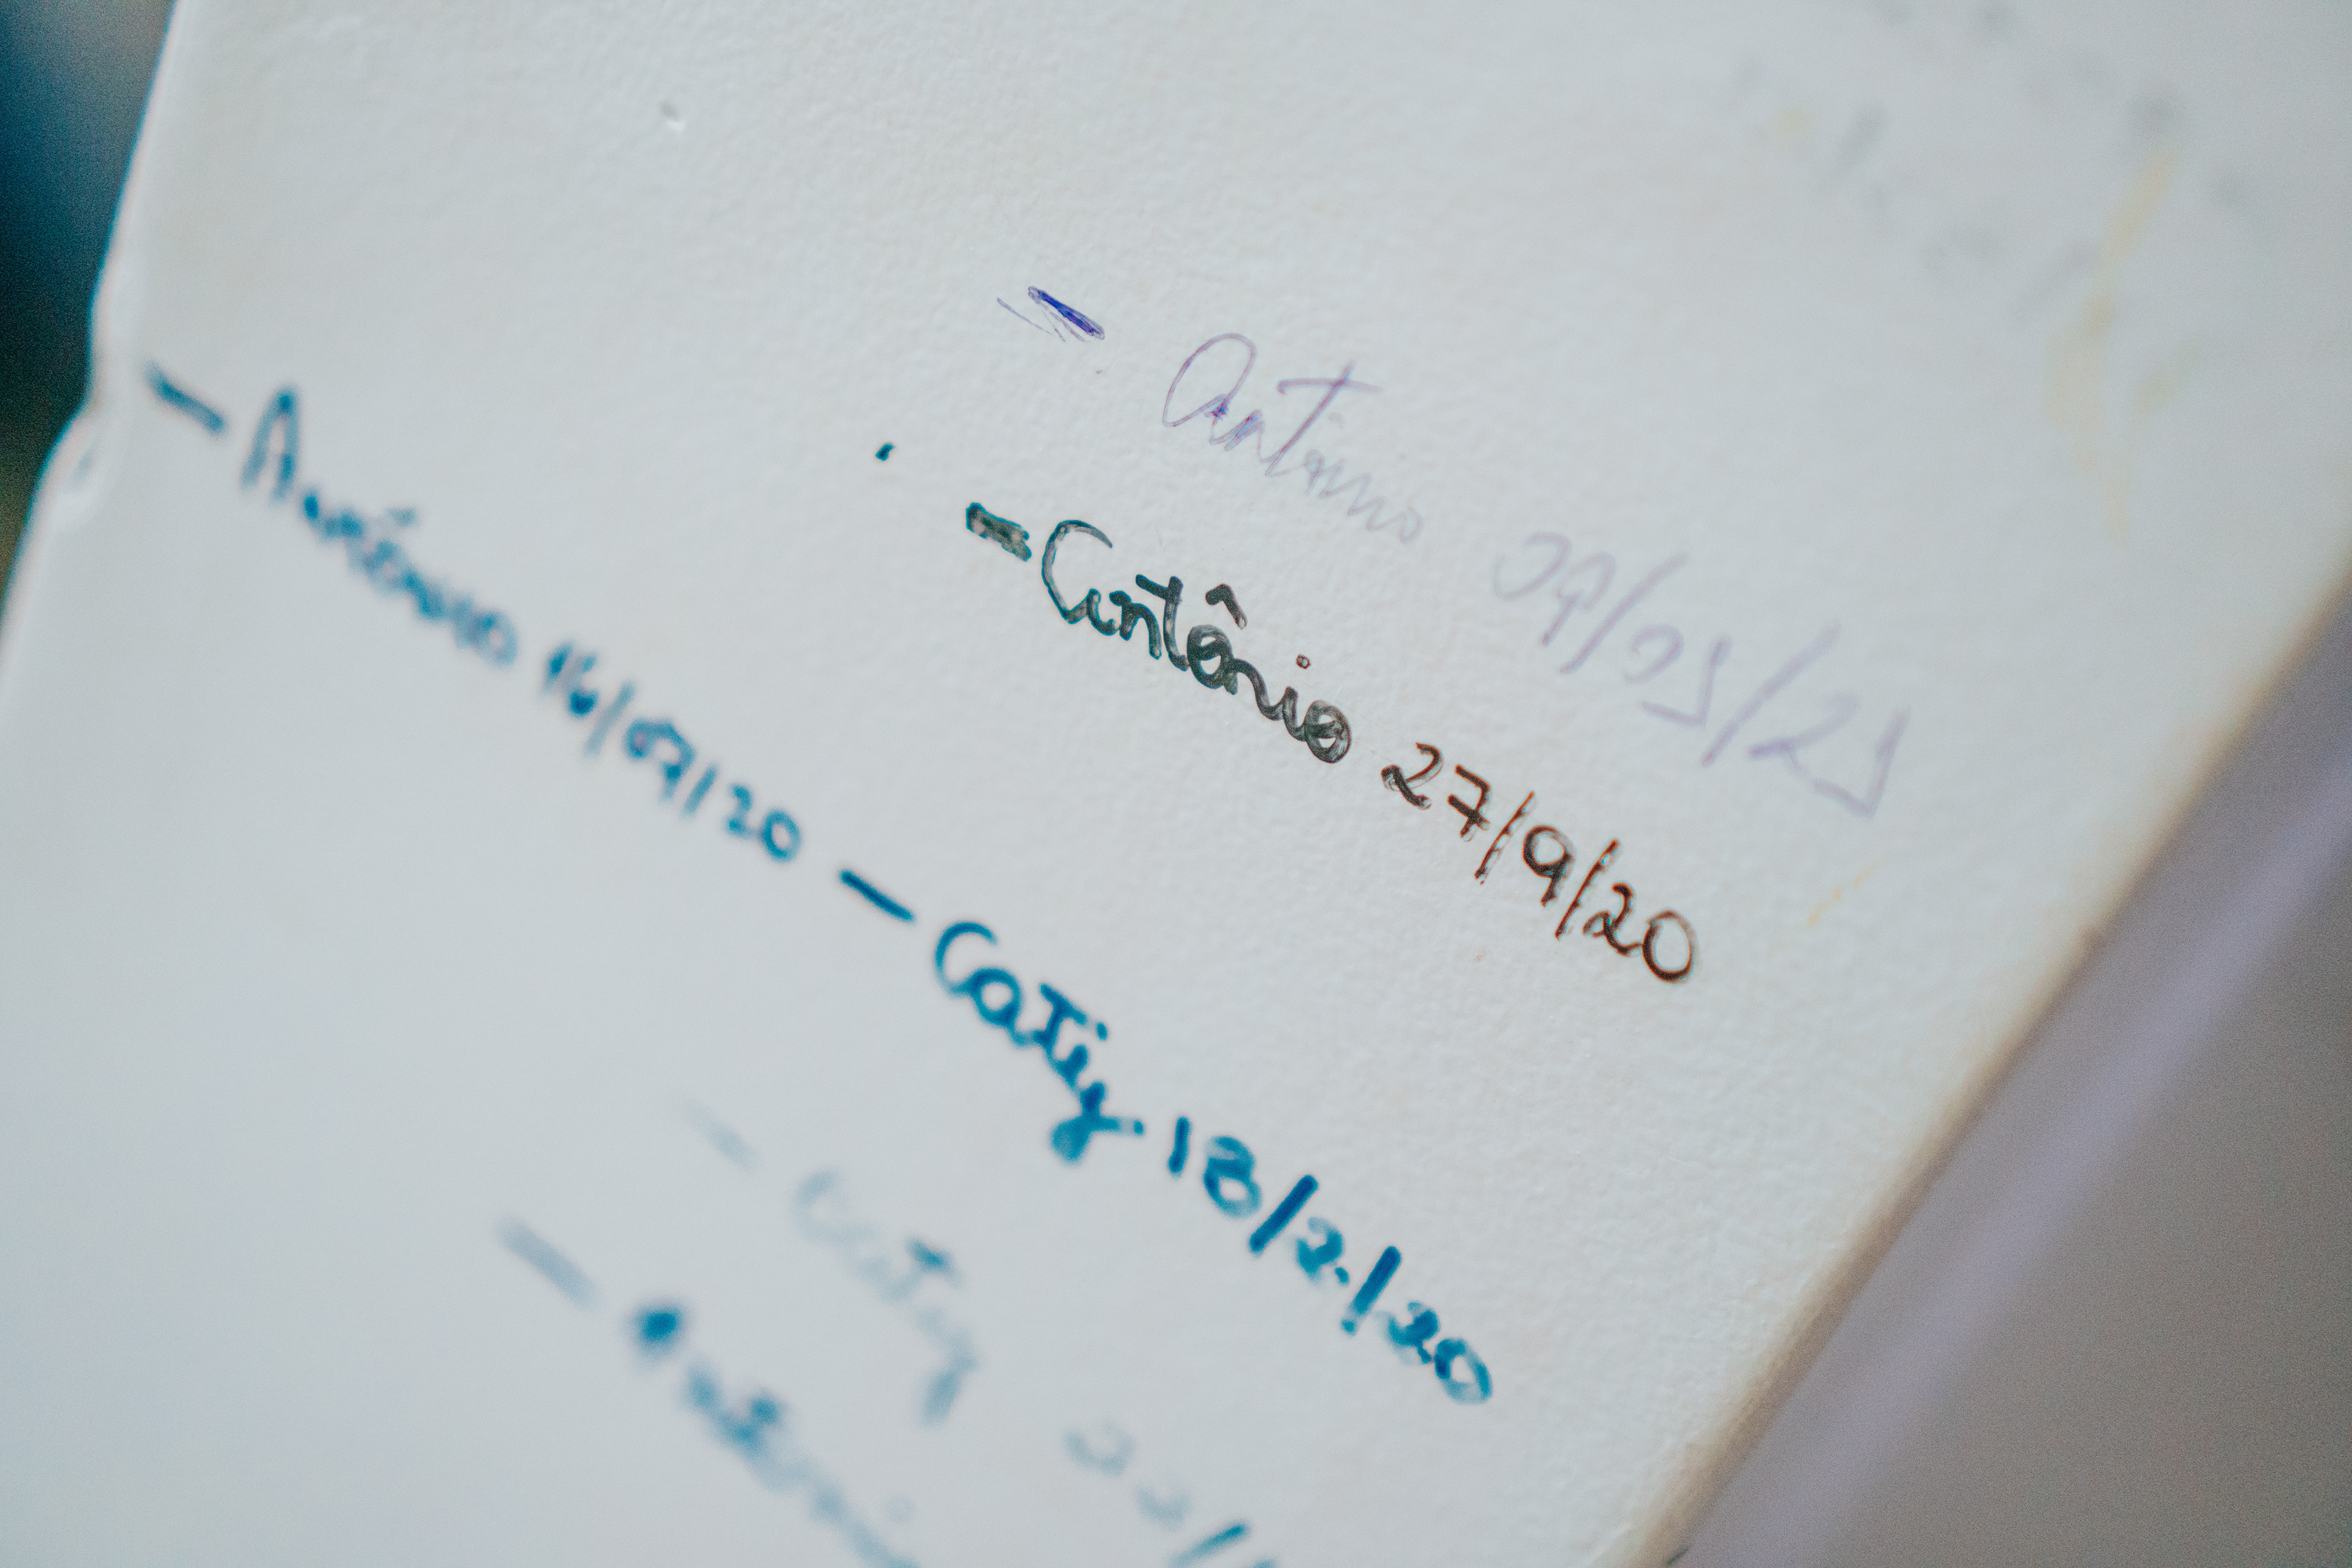 - Antônio 09/05/21
- Antônio 27/9/20
- Antônio 16/07/20
- Catiy 18/2/20
- Catiy
- Antôni